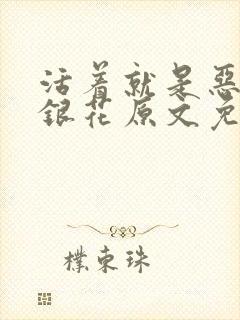 活着就是恶
銀花原文免
樸東珠